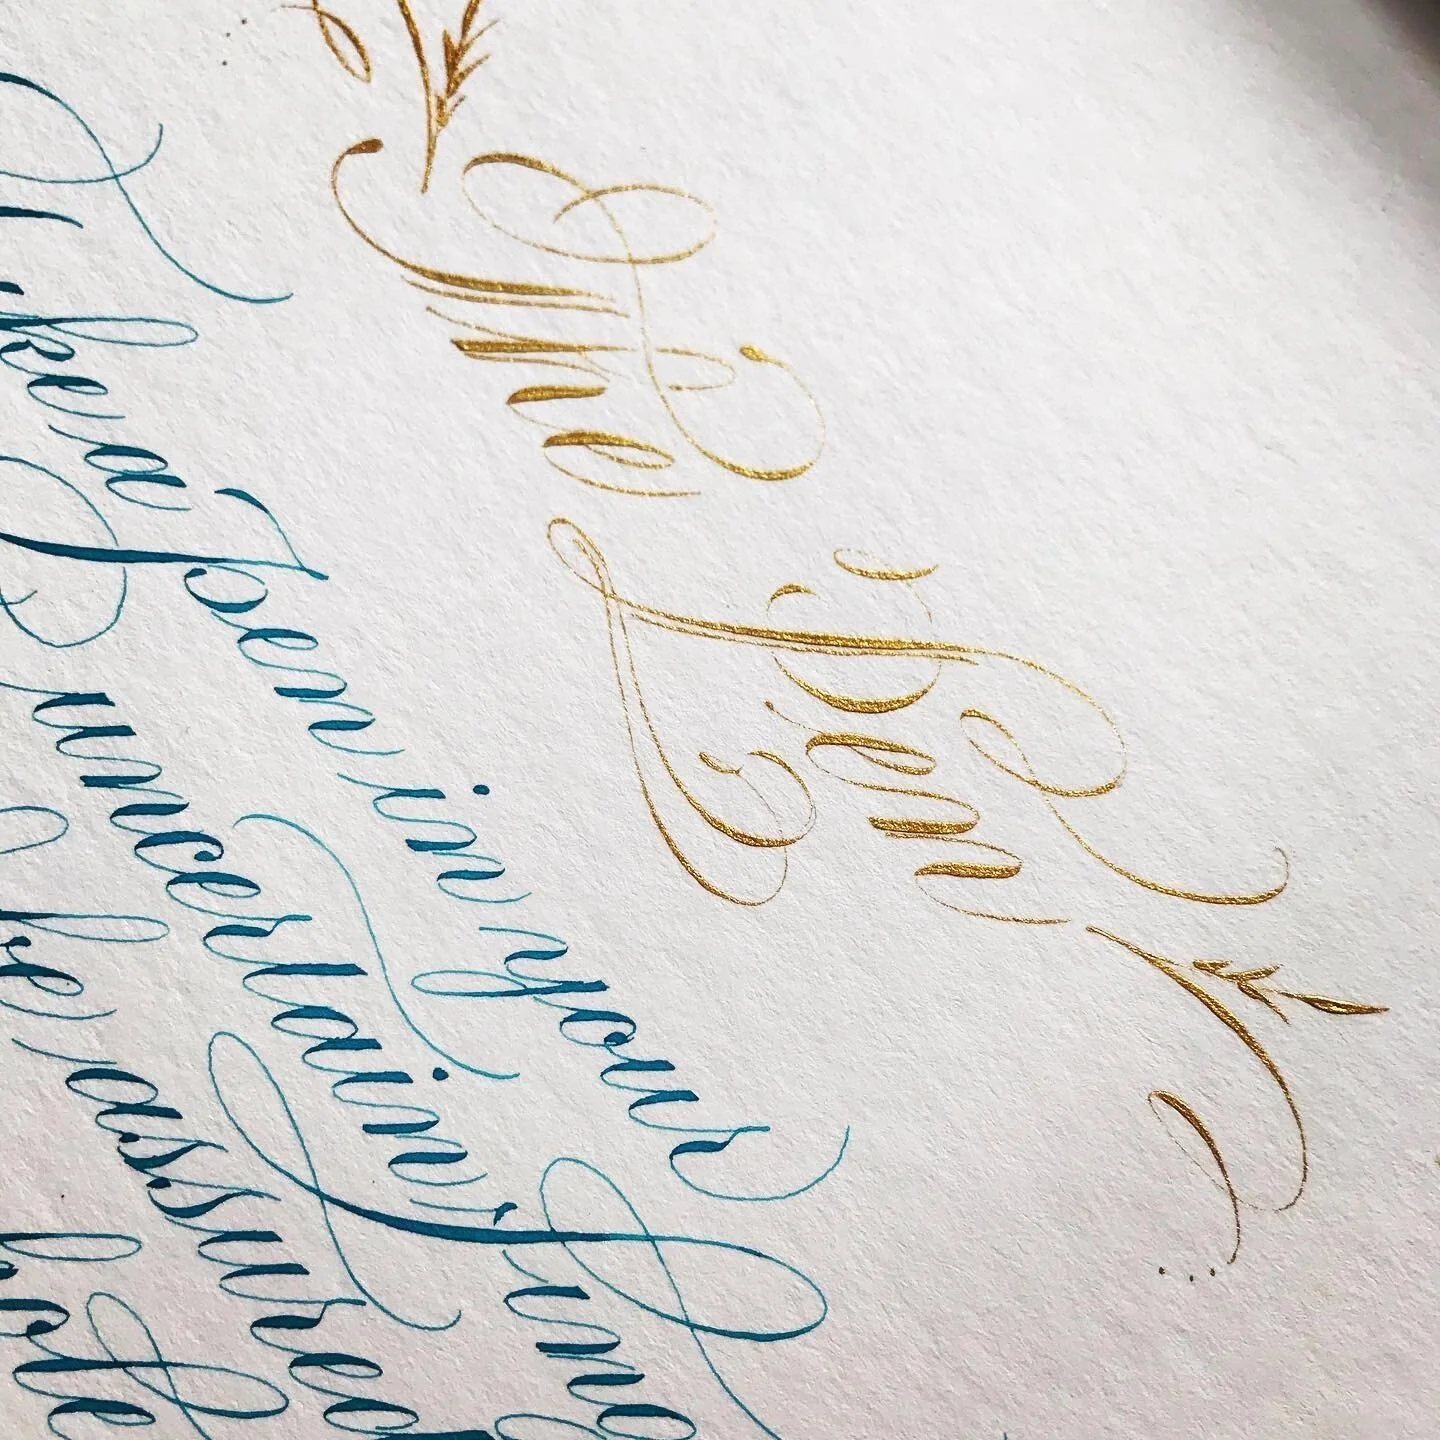 The Pen
Take a pen in your
uncertain fing
be assured
hole